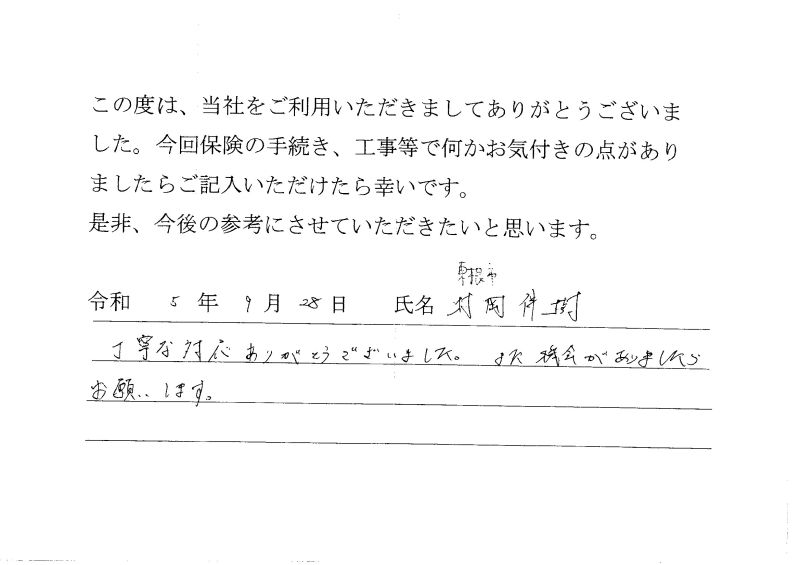 この度は、当社をご利用いただきましてありがとうございま
した。今回保険の手続き、工事等で何かお気付きの点があり
ましたらご記入いただけたら幸いです。
是非、今後の参考にさせていただきたいと思います。
東根市
令和 5 年 9 月 28 日 氏名 村岡 樹
丁寧な対応ありがとうございました。また機会がありましたら
お願いします。